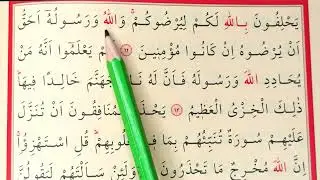 يَحْلِفُونَ بِاللّٰهِ لَكُمْ لِيُرْضُوكُمْۚ وَاللّٰهُ وَرَسُولُهُٓ اَحَقُّ
اَنْ يُرْضُوهُ اِنْ كَانُوا مُؤْمِنٖينَ ﴿٦٢﴾ اَلَمْ يَعْلَمُٓوا اَنَّهُ مَنْ
يُحَادِدِ اللّٰهَ وَرَسُولَهُ فَاَنَّ لَهُ نَارَ جَهَنَّمَ خَالِدًا فٖيهَاؕ
ذٰلِكَ الْخِزْيُ الْعَظٖيمُ ﴿٦٣﴾ يَحْذَرُ الْمُنَافِقُونَ اَنْ تُنَزَّلَ
عَلَيْهِمْ سُورَةٌ تُنَبِّئُهُمْ بِمَا فٖي قُلُوبِهِمْؕ قُلِ اسْتَهْزِؤُ۫اۚ
اِنَّ اللّٰهَ مُخْرِجٌ مَا تَحْذَرُونَ وَلَئِنْ سَاَلْتَهُمْ لَيَقُولُنَّ